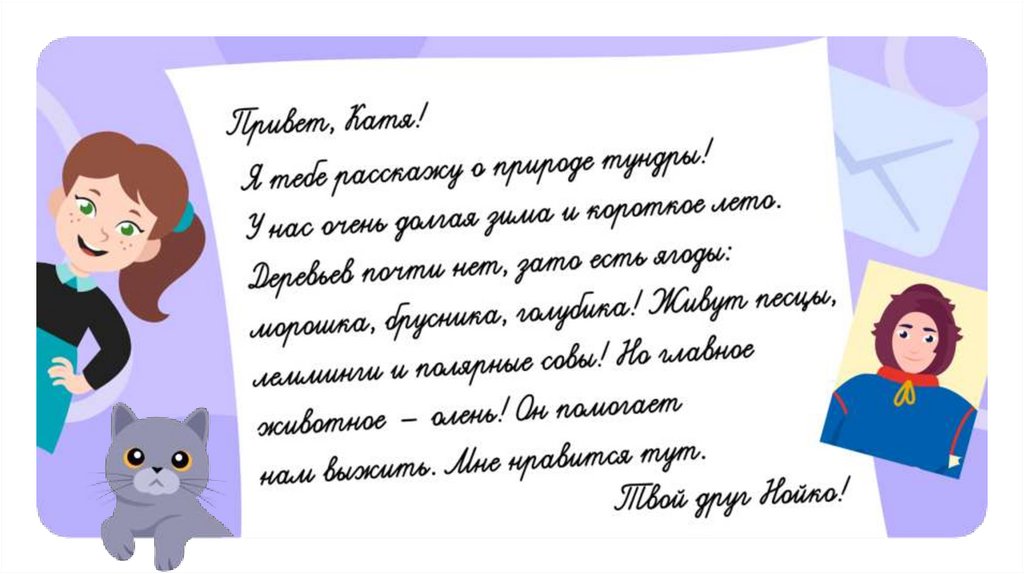 Привет, Катя!
Я тебе расскажу о природе тундры!
У нас очень долгая зима и короткое лето.
Деревьев почти нет, зато есть ягоды:
морошка, брусника, голубика! Живут песцы,
лемминги и полярные совы! Но главное
животное – олень! Он помогает
нам выжить. Мне нравится тут.
Твой друг Нойко!